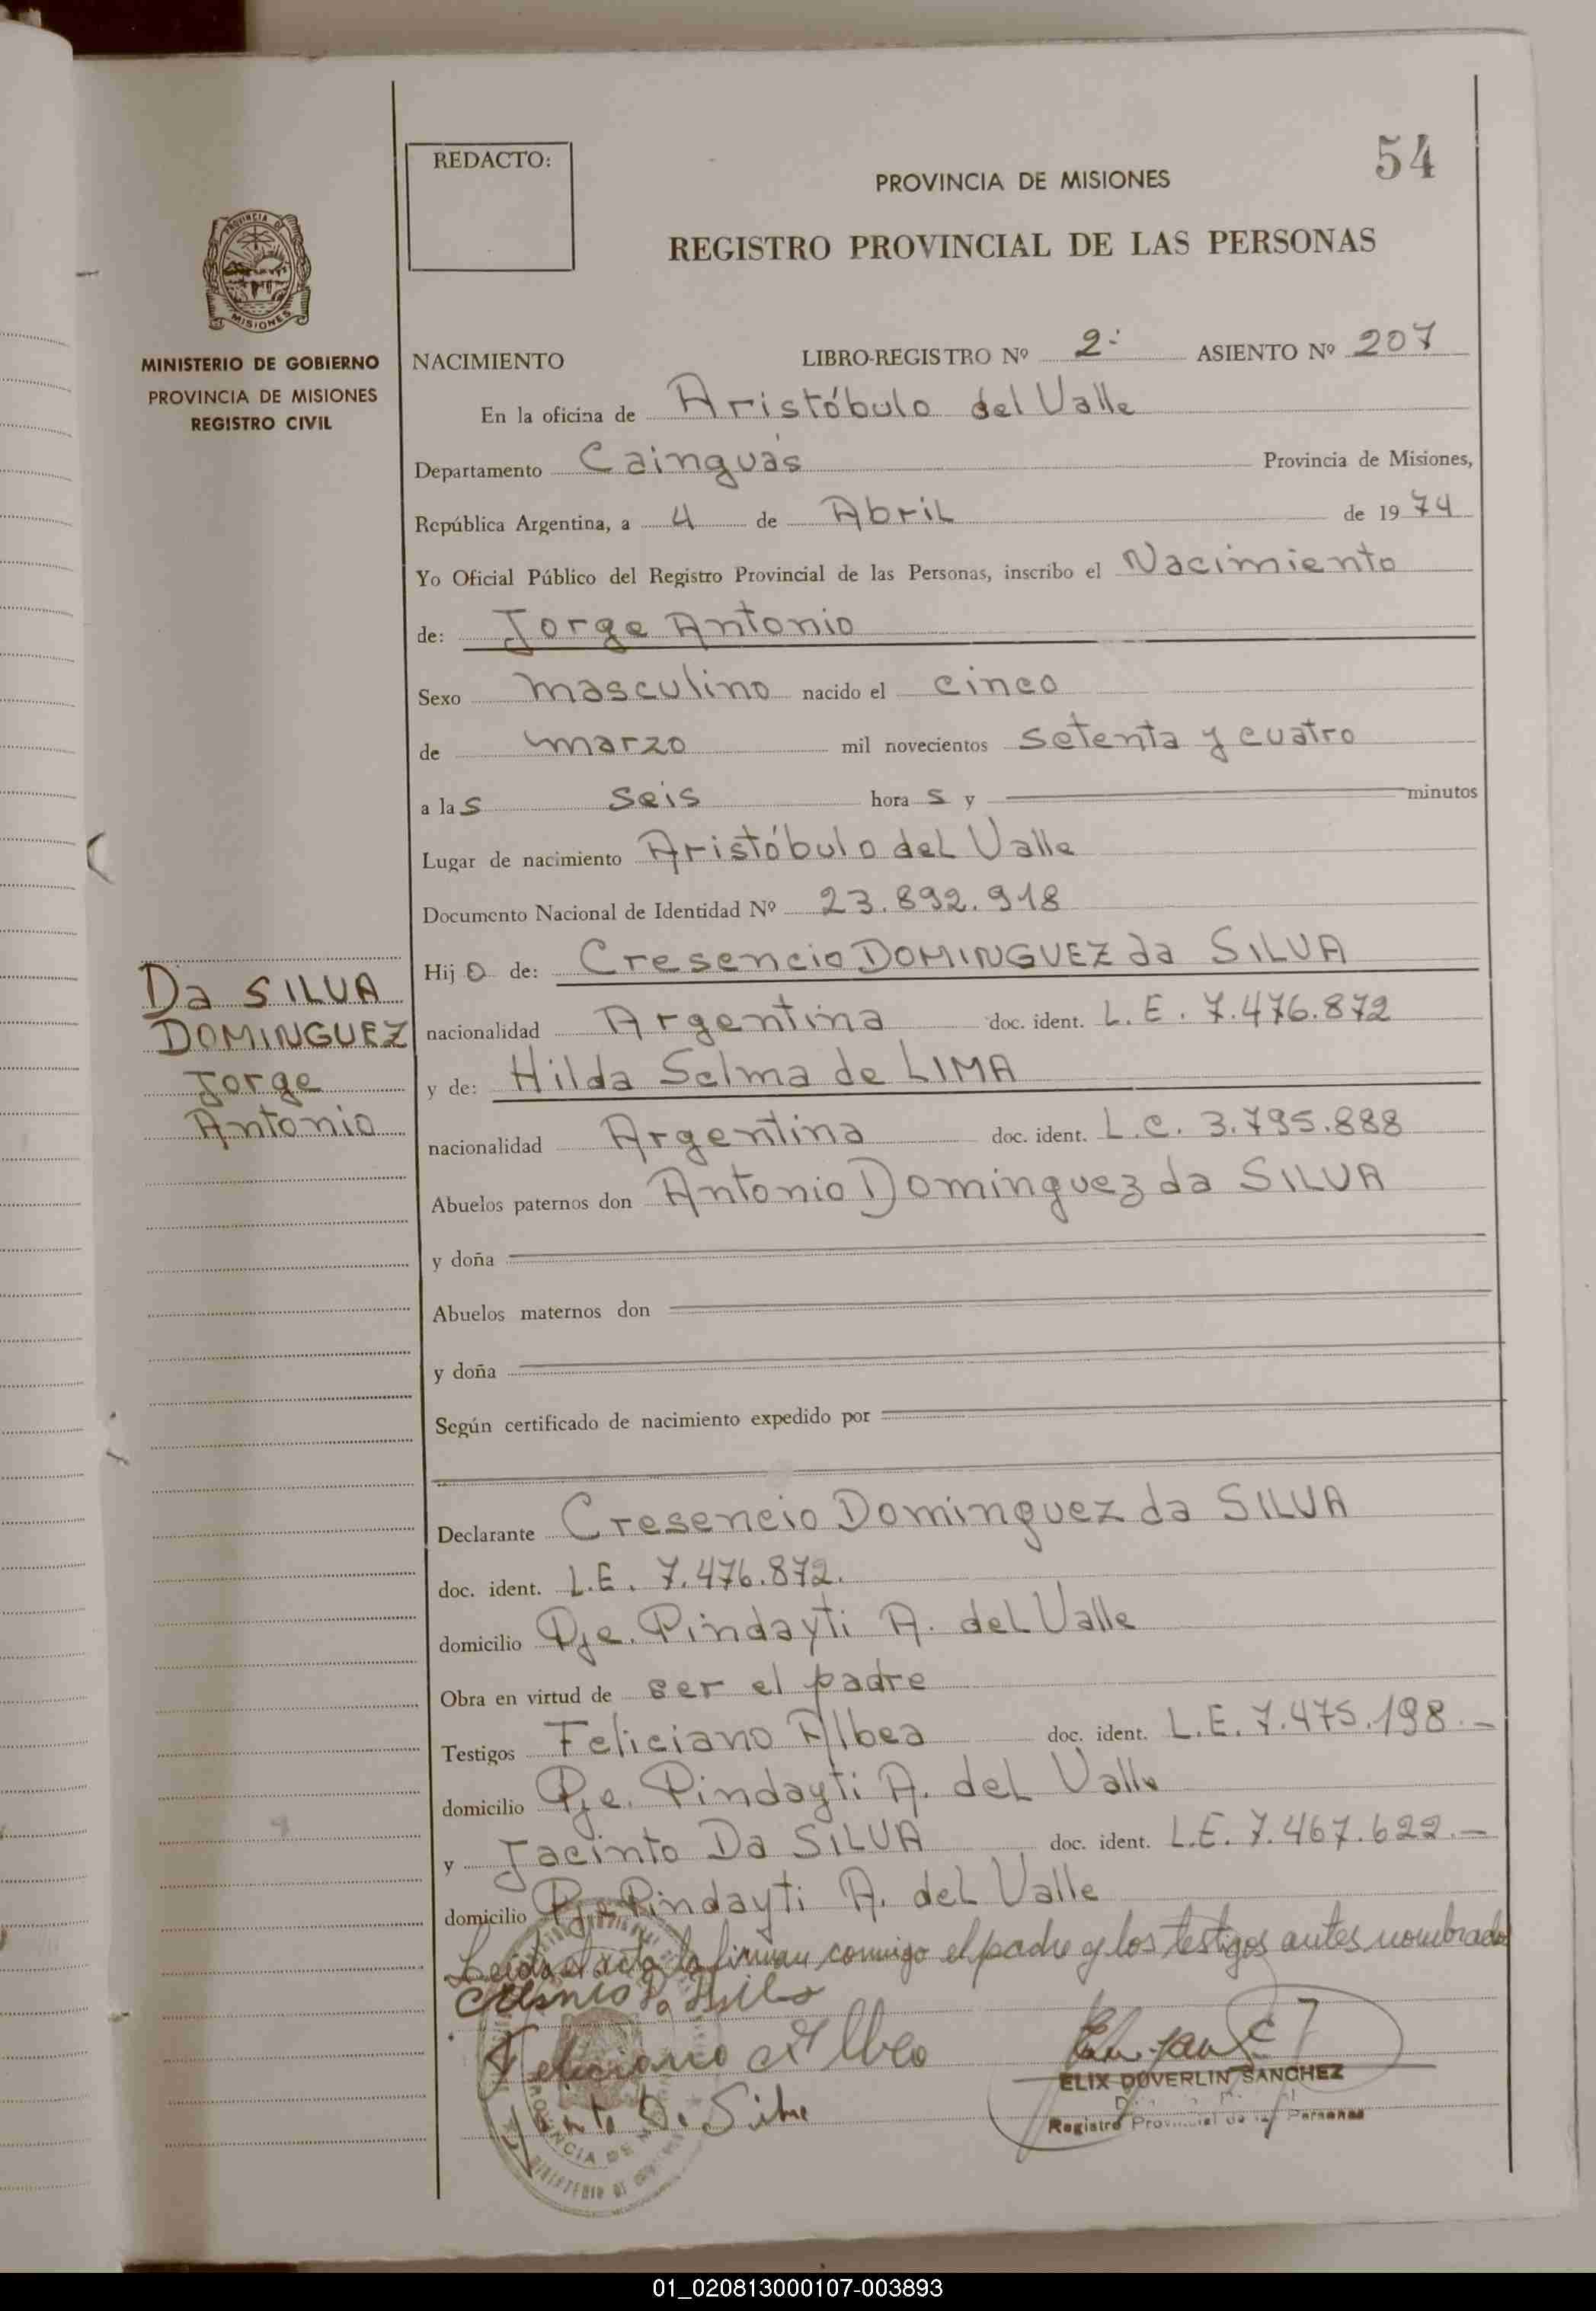 54
REDACTO:
PROVINCIA DE MISIONES
REGISTRO PROVINCIAL DE LAS PERSONAS
PROVINCIA DE
MISIONES
MINISTERIO DE GOBIERNO
PROVINCIA DE MISIONES
REGISTRO CIVIL
NACIMIENTO LIBRO-REGISTRO Nº 2º ASIENTO Nº 207
En la oficina de Aristóbulo del Valle
Departamento Cainguás Provincia de Misiones,
República Argentina, a 4 de Abril de 1974
Yo Oficial Público del Registro Provincial de las Personas, inscribo el Nacimiento
de: Jorge Antonio
Sexo masculino nacido el cinco
de marzo mil novecientos setenta y cuatro
a las seis horas y minutos
Lugar de nacimiento Aristóbulo del Valle
Documento Nacional de Identidad Nº 23.892.918
Hijo de: Cresencio DOMINGUEZ da SILVA
Da SILVA
DOMINGUEZ
Jorge
Antonio
nacionalidad Argentina doc. ident. L.E. 7.476.872
y de: Hilda Selma de LIMA
nacionalidad Argentina doc. ident. L.C. 3.795.888
Abuelos paternos don Antonio Dominguez da SILVA
y doña
Abuelos maternos don
y doña
Según certificado de nacimiento expedido por
Declarante Cresencio Dominguez da SILVA
doc. ident. L.E. 7.476.872.
domicilio Pje. Pindayti A. del Valle
Obra en virtud de ser el padre
Testigos Feliciano Albea doc. ident. L.E. 7.475.198.-
domicilio Pje. Pindayti A. del Valle
y Jacinto Da SILVA doc. ident. L.E. 7.467.622.-
domicilio Pje Pindayti A. del Valle
Leida el acta la firman conmigo el padre y los testigos antes nombrados
Da Silva
Feliciano Albeo
Da Silva
ELIX DUVERLIN SANCHEZ
Registro Provincial de las Personas
01_020813000107-003893